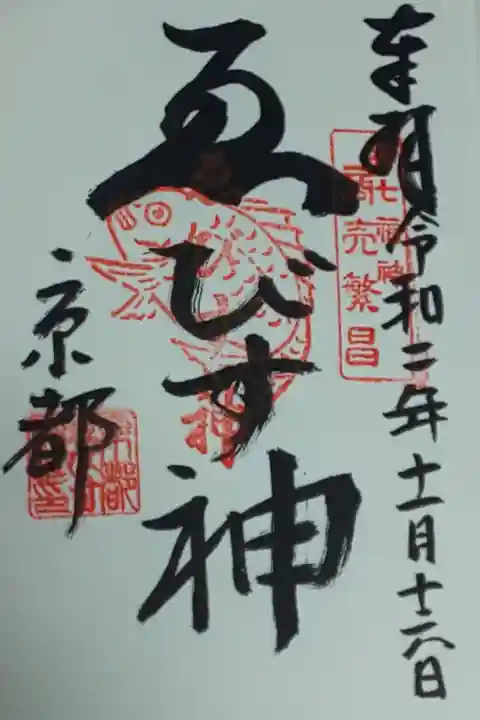 奉拝 令和二年十一月十六日
七福神
商売繁昌
ゑびす神
京都